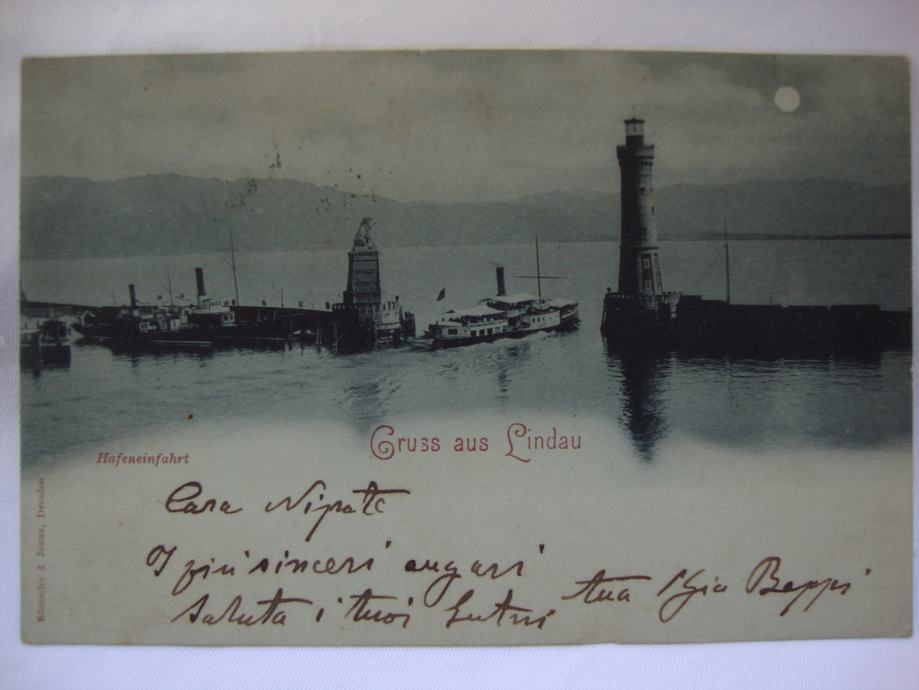 Gruss aus Lindau
Hafeneinfahrt
Cara Nipote
I più sinceri auguri
Saluta i tuoi
tua Beppi
Römmler & Jonas, Dresden